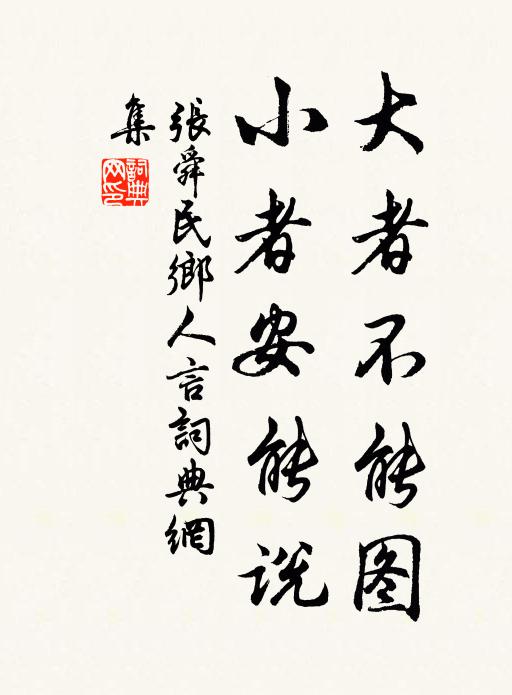 大者不能图
小者安能说
張舜民鄉人言詞典網
集
詞典
网印